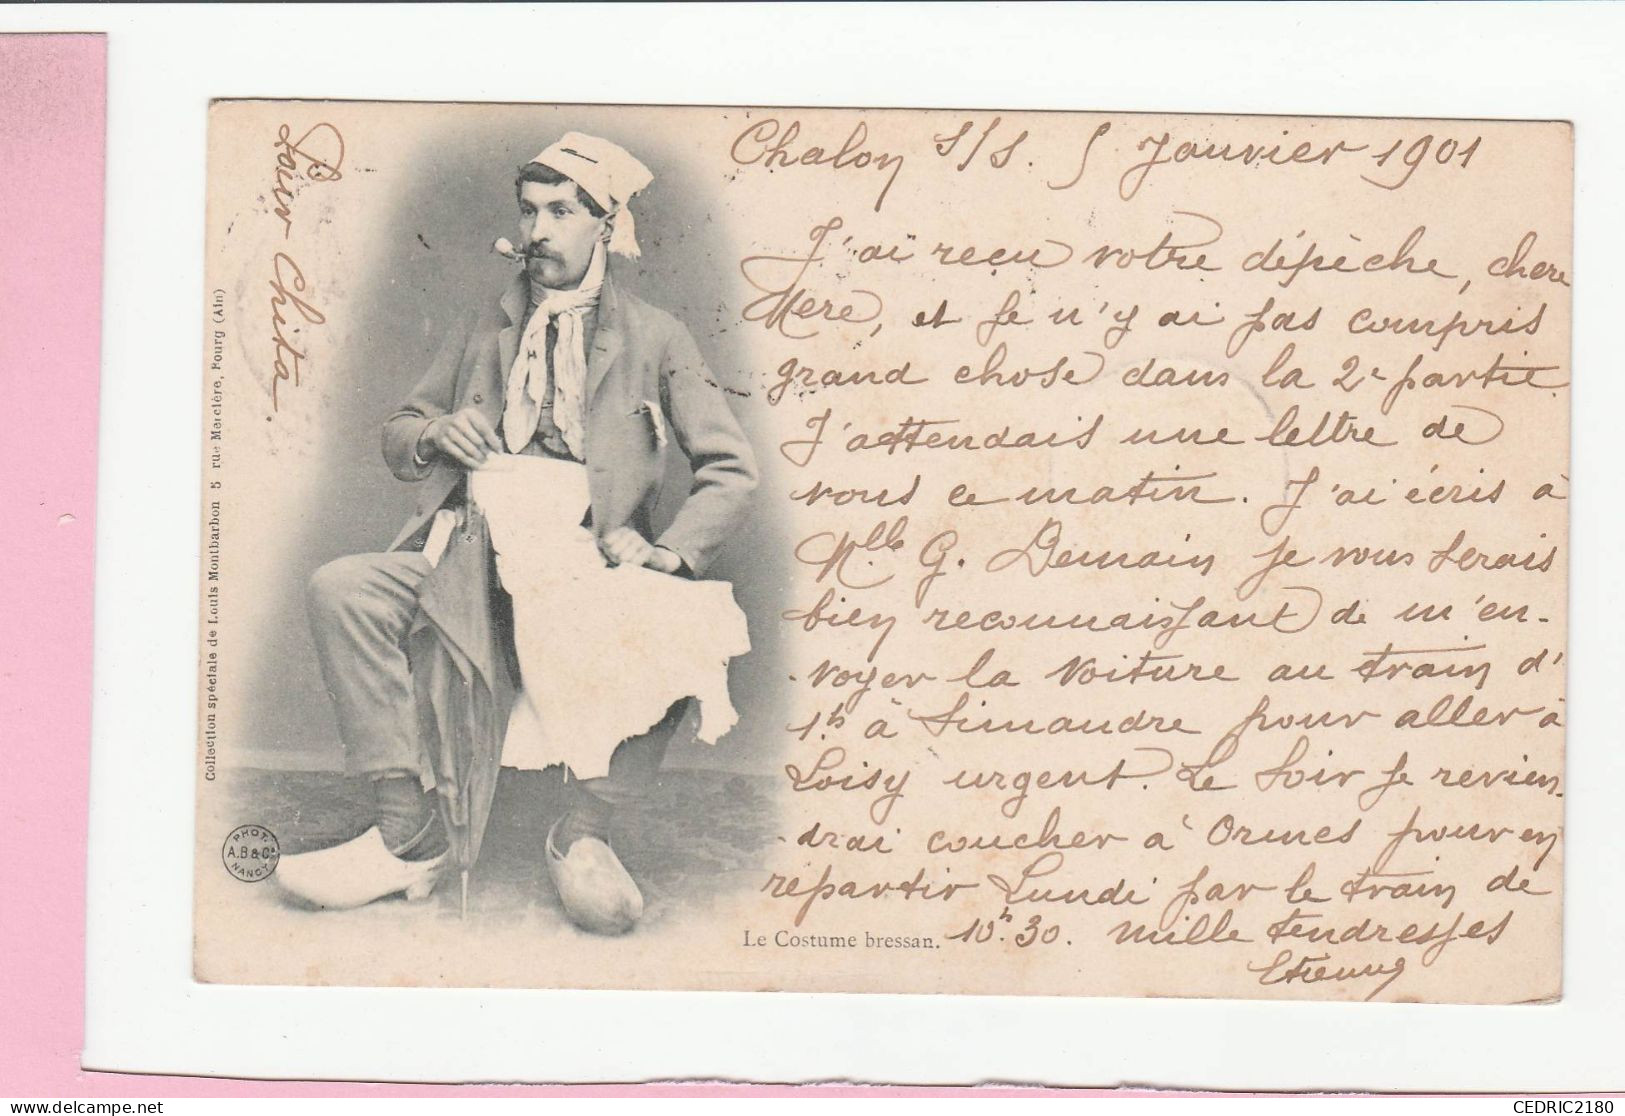 Pour Chita.
Collection spéciale de Louis Montbarbon 5 rue Mercière, Bourg (Ain)
PHOT.
A.B & Cie
NANCY
Le Costume bressan.
Chalon s/s. 5 Janvier 1901
J'ai reçu votre dépèche, chere
Mere, et je n'y ai pas compris
grand chose dans la 2e partie
J'attendais une lettre de
vous ce matin. J'ai écris à
Mlle G. Demain je vous serais
bien reconnaissant de m'en-
-voyer la voiture au train d'
1h à Simandre pour aller à
Loisy urgent. Le soir je revien-
-drai coucher à Ormes pour en
repartir Lundi par le train de
10h.30. Mille tendresses
Etienne
CEDRIC2180